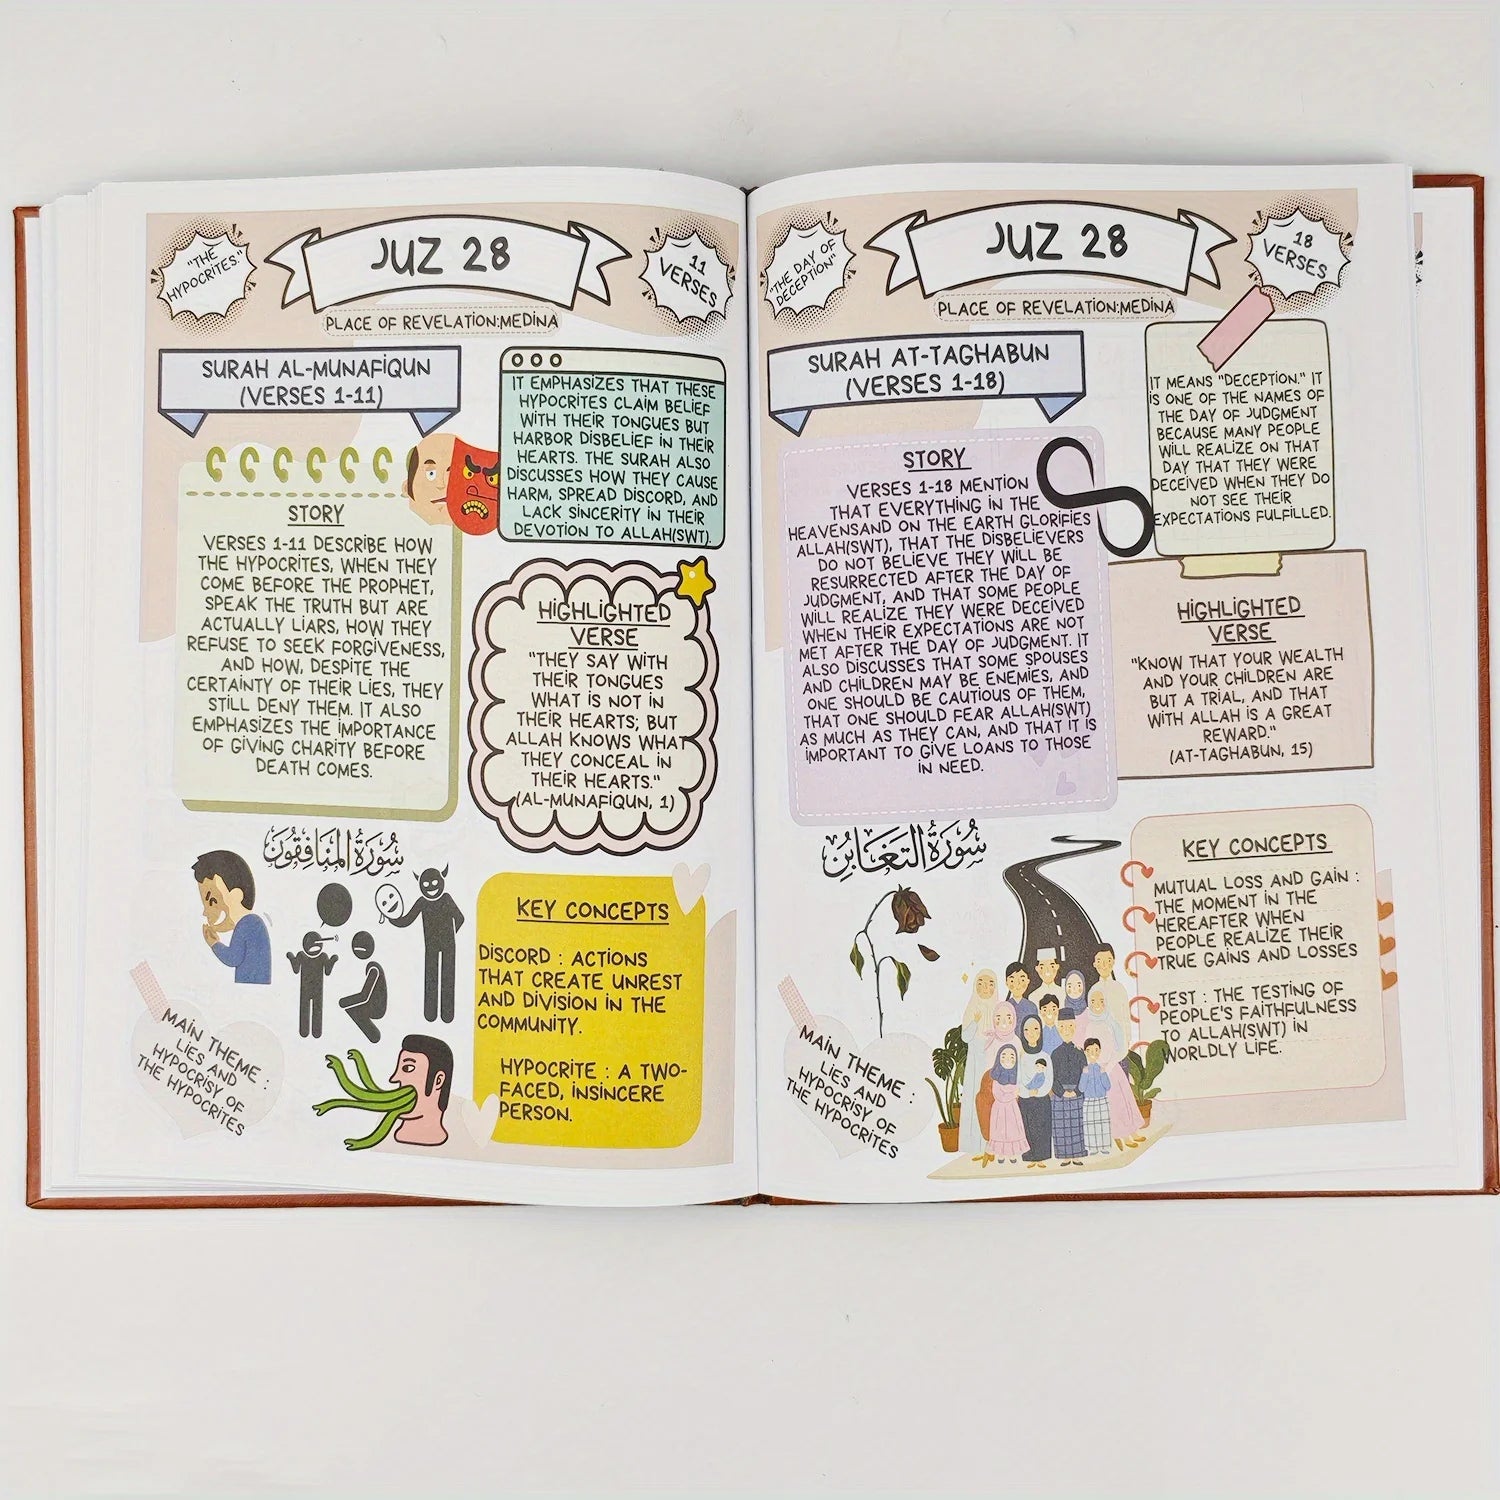 "THE
HYPOCRITES."
JUZ 28
11
VERSES
PLACE OF REVELATION:MEDINA
SURAH AL-MUNAFIQUN
(VERSES 1-11)
IT EMPHASIZES THAT THESE
HYPOCRITES CLAIM BELIEF
WITH THEIR TONGUES BUT
HARBOR DISBELIEF IN THEIR
HEARTS. THE SURAH ALSO
DISCUSSES HOW THEY CAUSE
HARM, SPREAD DISCORD, AND
LACK SINCERITY IN THEIR
DEVOTION TO ALLAH(SWT).
STORY
VERSES 1-11 DESCRIBE HOW
THE HYPOCRITES, WHEN THEY
COME BEFORE THE PROPHET,
SPEAK THE TRUTH BUT ARE
ACTUALLY LIARS, HOW THEY
REFUSE TO SEEK FORGIVENESS,
AND HOW, DESPITE THE
CERTAINTY OF THEIR LIES, THEY
STILL DENY THEM. IT ALSO
EMPHASIZES THE IMPORTANCE
OF GIVING CHARITY BEFORE
DEATH COMES.
HIGHLIGHTED
VERSE
"THEY SAY WITH
THEIR TONGUES
WHAT IS NOT IN
THEIR HEARTS; BUT
ALLAH KNOWS WHAT
THEY CONCEAL IN
THEIR HEARTS."
(AL-MUNAFIQUN, 1)
سُورَةُ المُنَافِقُونَ
KEY CONCEPTS
DISCORD : ACTIONS
THAT CREATE UNREST
AND DIVISION IN THE
COMMUNITY.
HYPOCRITE : A TWO-
FACED, INSINCERE
PERSON.
MAIN THEME :
LIES AND
HYPOCRISY OF
THE HYPOCRITES
"THE DAY OF
DECEPTION"
JUZ 28
18
VERSES
PLACE OF REVELATION:MEDINA
SURAH AT-TAGHABUN
(VERSES 1-18)
IT MEANS "DECEPTION." IT
IS ONE OF THE NAMES OF
THE DAY OF JUDGMENT
BECAUSE MANY PEOPLE
WILL REALIZE ON THAT
DAY THAT THEY WERE
DECEIVED WHEN THEY DO
NOT SEE THEIR
EXPECTATIONS FULFILLED.
STORY
VERSES 1-18 MENTION
THAT EVERYTHING IN THE
HEAVENSAND ON THE EARTH GLORIFIES
ALLAH(SWT), THAT THE DISBELIEVERS
DO NOT BELIEVE THEY WILL BE
RESURRECTED AFTER THE DAY OF
JUDGMENT, AND THAT SOME PEOPLE
WILL REALIZE THEY WERE DECEIVED
WHEN THEIR EXPECTATIONS ARE NOT
MET AFTER THE DAY OF JUDGMENT. IT
ALSO DISCUSSES THAT SOME SPOUSES
AND CHILDREN MAY BE ENEMIES, AND
ONE SHOULD BE CAUTIOUS OF THEM,
THAT ONE SHOULD FEAR ALLAH(SWT)
AS MUCH AS THEY CAN, AND THAT IT IS
IMPORTANT TO GIVE LOANS TO THOSE
IN NEED.
HIGHLIGHTED
VERSE
"KNOW THAT YOUR WEALTH
AND YOUR CHILDREN ARE
BUT A TRIAL, AND THAT
WITH ALLAH IS A GREAT
REWARD."
(AT-TAGHABUN, 15)
سُورَةُ التَّغَابُنِ
KEY CONCEPTS
MUTUAL LOSS AND GAIN :
THE MOMENT IN THE
HEREAFTER WHEN
PEOPLE REALIZE THEIR
TRUE GAINS AND LOSSES
TEST : THE TESTING OF
PEOPLE'S FAITHFULNESS
TO ALLAH(SWT) IN
WORLDLY LIFE.
MAIN THEME :
LIES AND
HYPOCRISY OF
THE HYPOCRITES